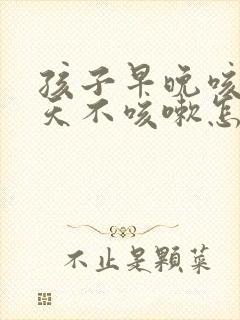 孩子早晚咳
天不咳嗽怎
不止是颗菜